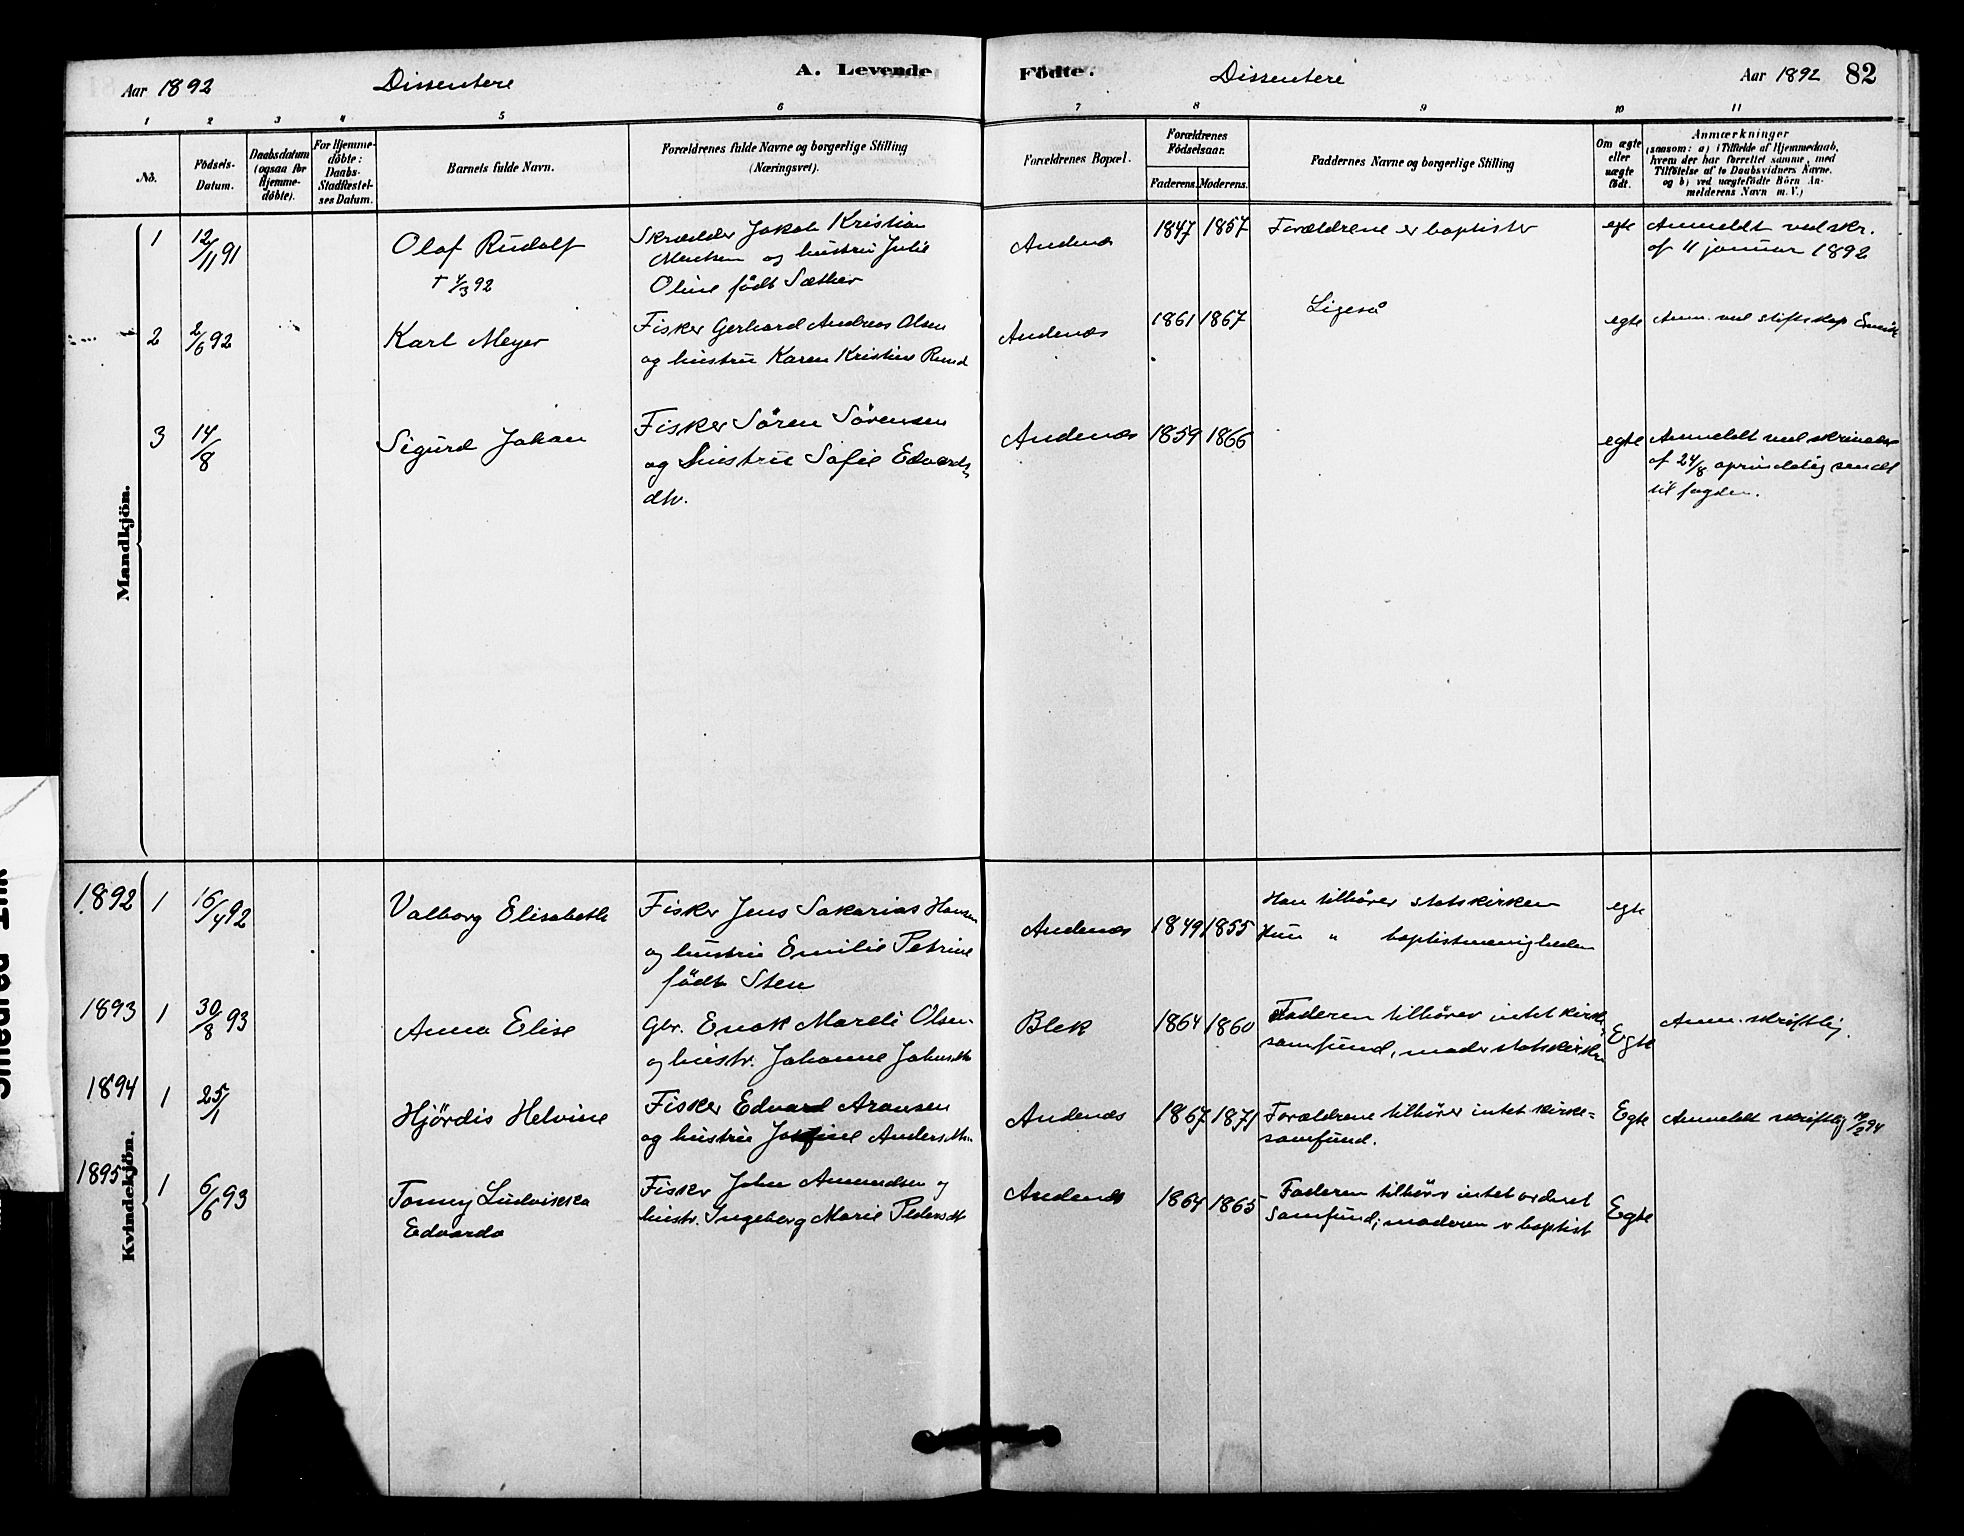 Aar 1892
Dissentere
A. Levende
Födte.
Dissentere
Aar 1892
82
1 2 3 4 5 6 7 8 9 10 11
No.
Födsels-
Datum.
Daabsdatum
(ogsaa for
Hjemme-
döbte).
For Hjemme-
döbte:
Daabs-
Stadfæstel-
ses Datum.
Barnets fulde Navn.
Forældrenes fulde Navne og borgerlige Stilling
(Næringsvei).
Forældrenes Bopæl.
Forældrenes
Födselsaar.
Faderens. Moderens.
Faddernes Navne og borgerlige Stilling
Om ægte
eller
uægte
födt.
Anmærkninger
(saasom: a) i Tilfælde af Hjemmedaab,
hvem der har forrettet samme, med
Tilföielse af to Daabsvidners Navne,
og b) ved uægtefödte Börn An-
melderens Navn m. V.)
Mandkjön.
1 12/11 91
Olaf Rudolf
† 4/3 92
Skrædder Jakob Kristian
og hustru Julie
Oline født Sæther
Andenæs
1847 1857
Forældrene er baptister
egte
Anmeldt ved skr.
af 11 januar 1892
2 2/6 92
Karl Meyer
Fisker Gerhard Andreas Olsen
og hustru Karen Kristine
Andenæs
1861 1867
Ligeså
egte
Anm. ved
3 14/8
Sigurd Johan
Fisker Sören Sörensen
og hustru Sofie Edvards
dtr.
Andenæs
1859 1866
egte
Anmeldt ved skrivelse
af 24/8 oprindelig sendt
til fogden.
Kvindekjön.
1892 1 16/4 92
Valborg Elisabeth
Fisker Jens Sakarias Hansen
og hustru Emilie Petrine
född Sten
Andenæs
1849 1855
Han tilhörer statskirken
Hun " baptistmenigheden
egte
1893 1 30/8 93
Anna Elise
Gbr. Enok Mareli Olsen
og hustr. Johanne Johnsdtr
Blek
1864 1860
Faderen tilhörer intet kirke
samfund, moder statskirken
Egte
Anm. skriftlig.
1894 1 25/1
Hjördis Helvine
Fisker Edvard Aronsen
og hustru Josefine Andersdtr
Andenæs
1867 1871
Forældrene tilhörer intet kirke=
samfund.
Egte
Anmeldt skriftlig
1895 1 6/6 93
Tonny Ludvikka
Edvarda
Fisker John Amundsen og
hustr. Ingeborg Marie Pedersdt
Andenæs
1864 1865
Faderen tilhörer intet ordnet
Samfund; moderen er baptist
Egte